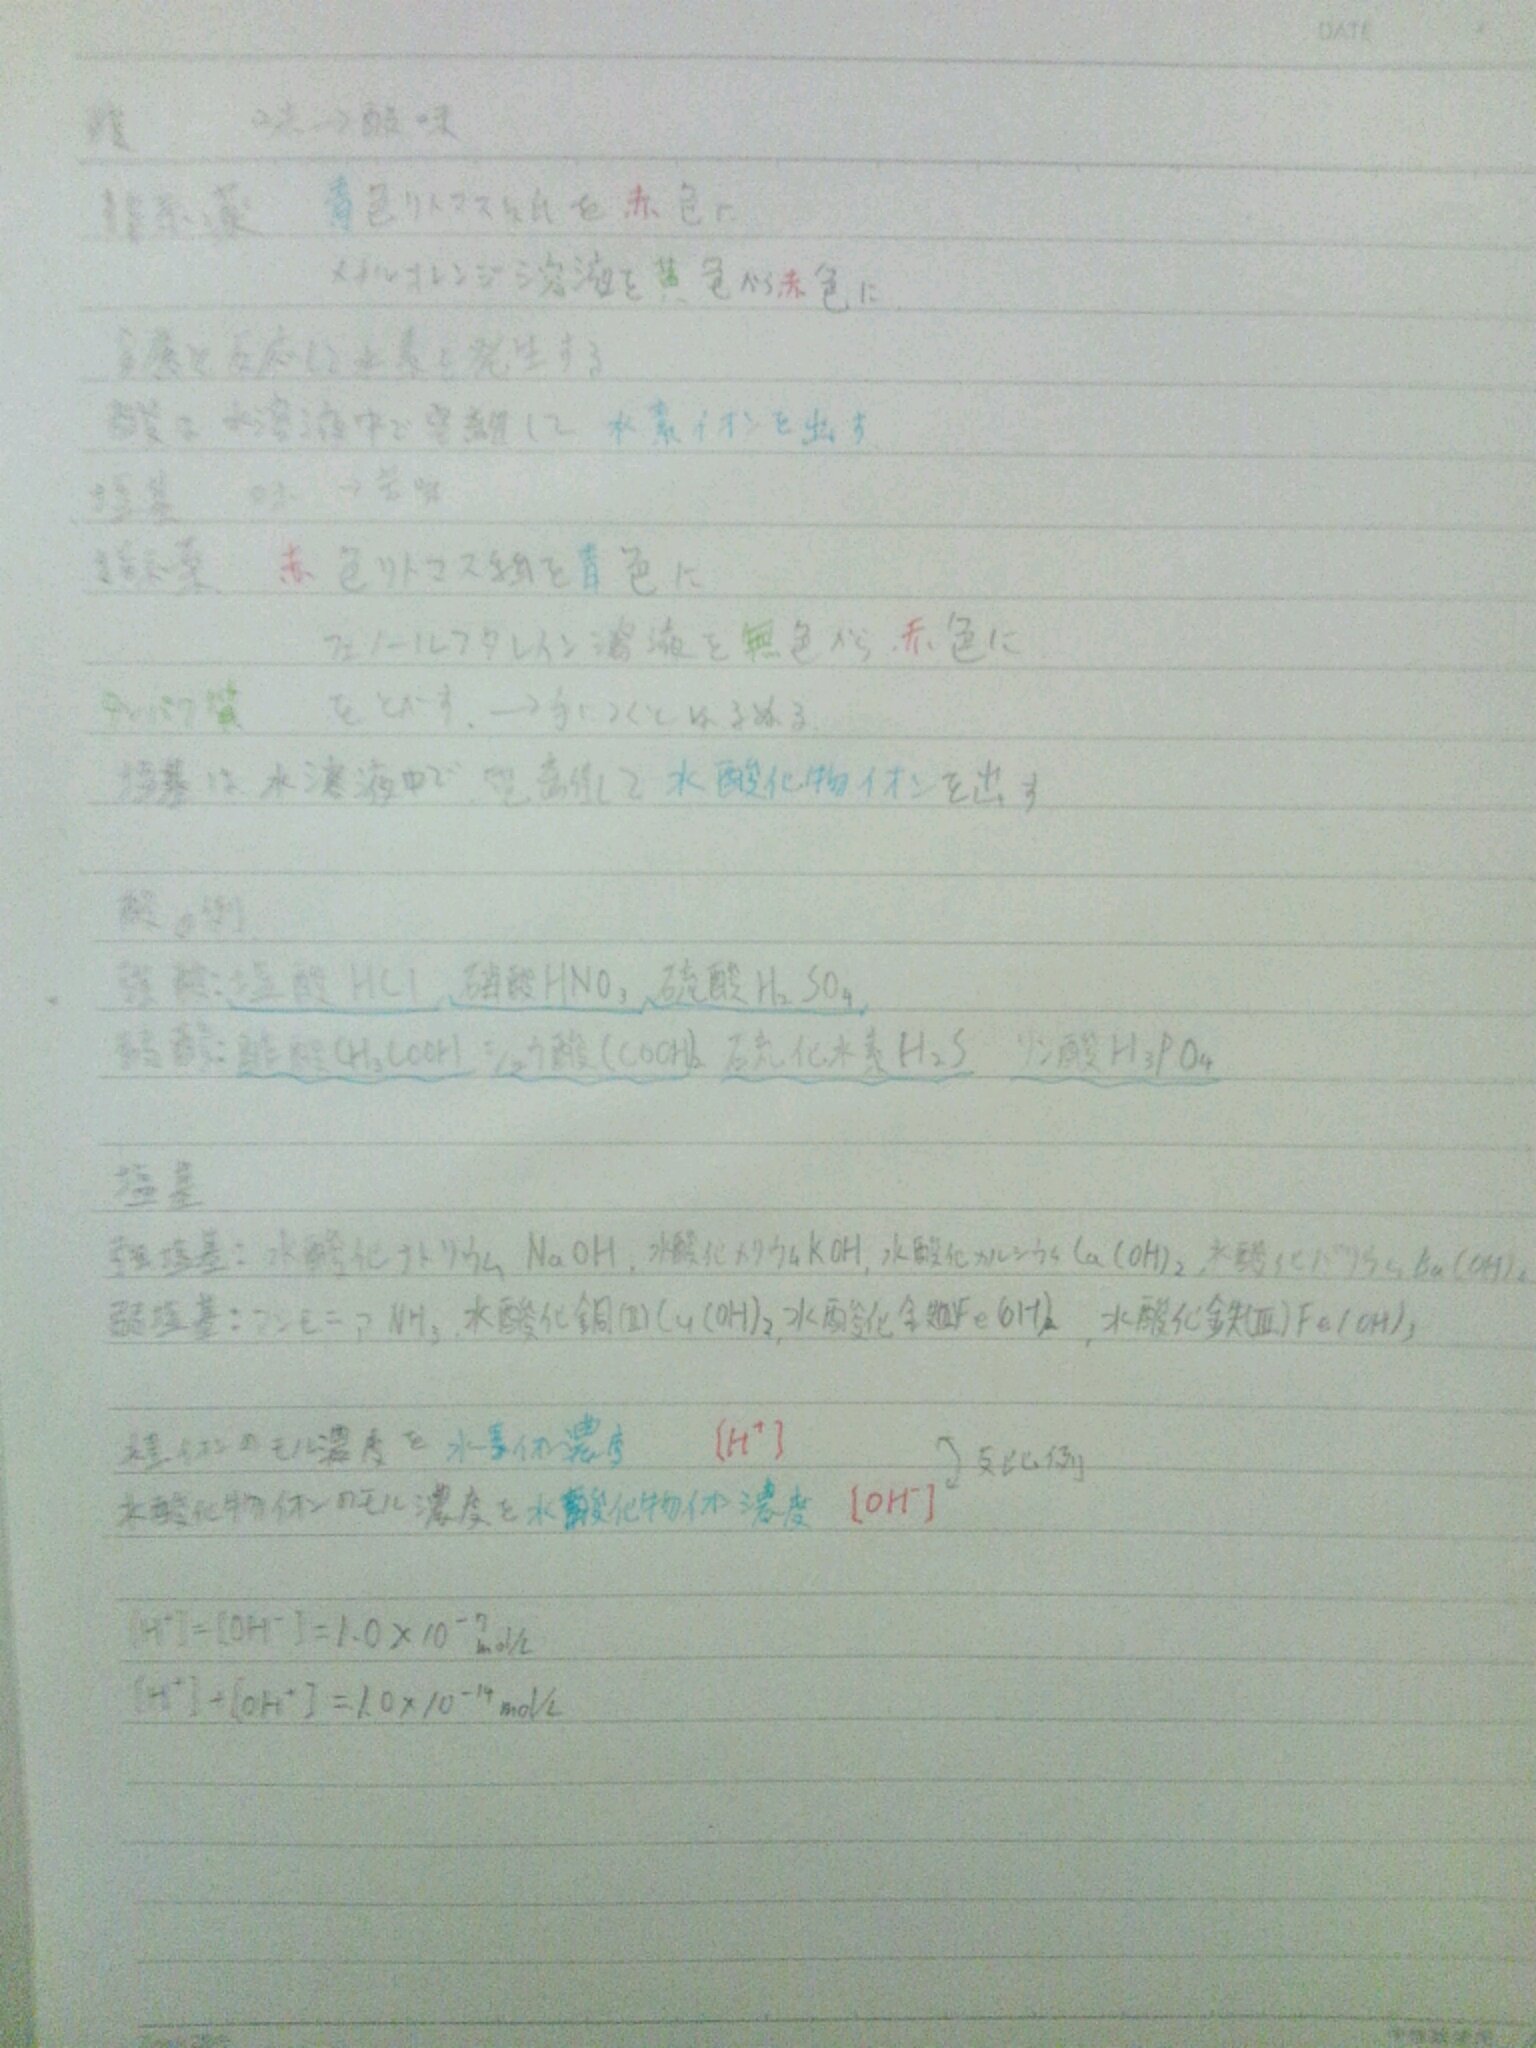 DATE
酸 味→酸味
指示薬 青色リトマス紙を赤色に
メチルオレンジ溶液を黄色から赤色に
金属と反応して水素を発生する
酸は水溶液中で電離して水素イオンを出す
塩基 味→苦味
指示薬 赤色リトマス紙を青色に
フェノールフタレイン溶液を無色から赤色に
タンパク質をとかす.→手につくとぬるぬる
塩基は水溶液中で電離して水酸化物イオンを出す
酸の例
強酸:塩酸HCl,硝酸HNO3,硫酸H2SO4
弱酸:酢酸CH3COOH シュウ酸(COOH)2 硫化水素H2S リン酸H3PO4
塩基
強塩基:水酸化ナトリウムNaOH,水酸化カリウムKOH,水酸化カルシウムCa(OH)2,水酸化バリウムBa(OH)2
弱塩基:アンモニアNH3,水酸化銅(II)Cu(OH)2,水酸化鉄(II)Fe(OH)2,水酸化鉄(III)Fe(OH)3
水素イオンのモル濃度を水素イオン濃度 [H⁺]
反比例
水酸化物イオンのモル濃度を水酸化物イオン濃度 [OH⁻]
[H⁺]=[OH⁻]=1.0×10⁻⁷mol/L
[H⁺]-[OH⁺]=1.0×10⁻¹⁴mol/L